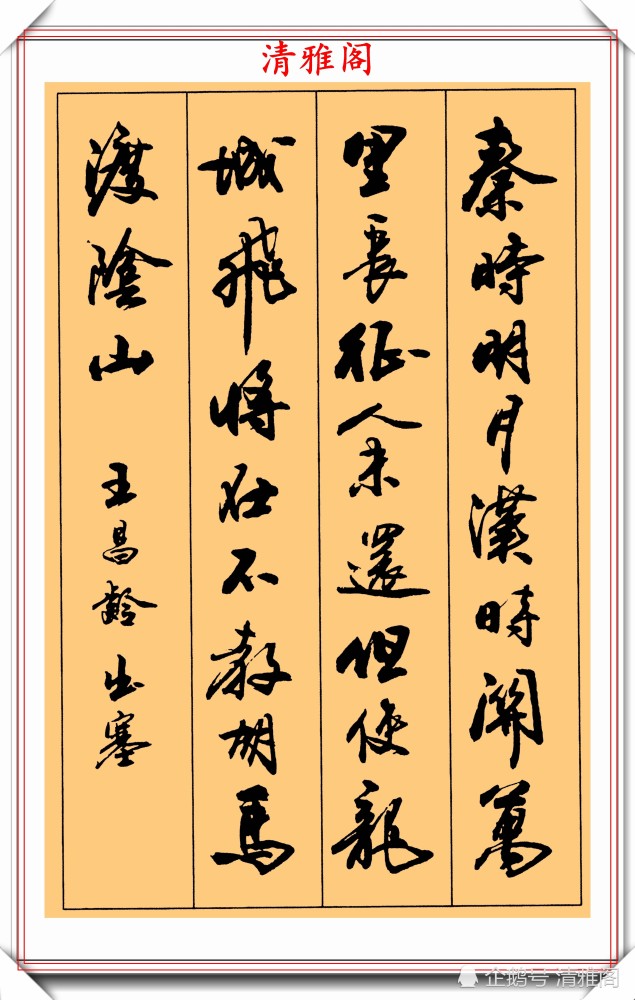 清雅阁
秦時明月漢時關萬
里長征人未還但使龍
城飛將在不教胡馬
渡陰山 王昌齡出塞
企鹅号 清雅阁